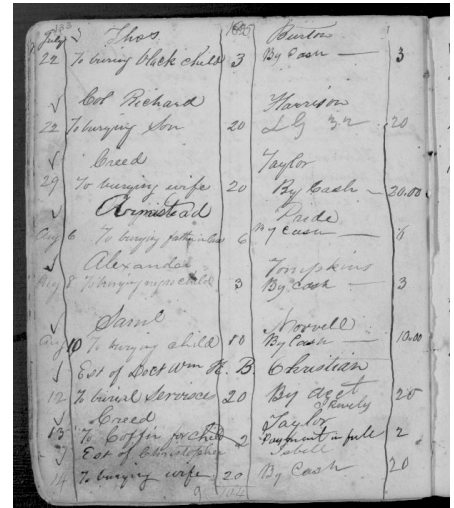 July
Thos Burton
22 To buring black child 3 By Cash — 3
Col Richard Harrison
22 To burying Son 20 20
Creed Taylor
29 To burying wife 20 By Cash — 20.00
Armistead Pride
Aug 6 To burying 6 By Cash — 6
Alexander Tompkins
Aug 8 To burying child 3 By Cash — 3
Saml Norvell
Aug 10 To burying child 10 By Cash — 10.00
Est of Doct Wm H. B. Christian
12 To buriel Services 20 By acct 20
Creed Taylor
13 To Coffin for child 2 Payment in full 2
Est of Christopher Isbell
14 To burying wife 20 By Cash 20
104